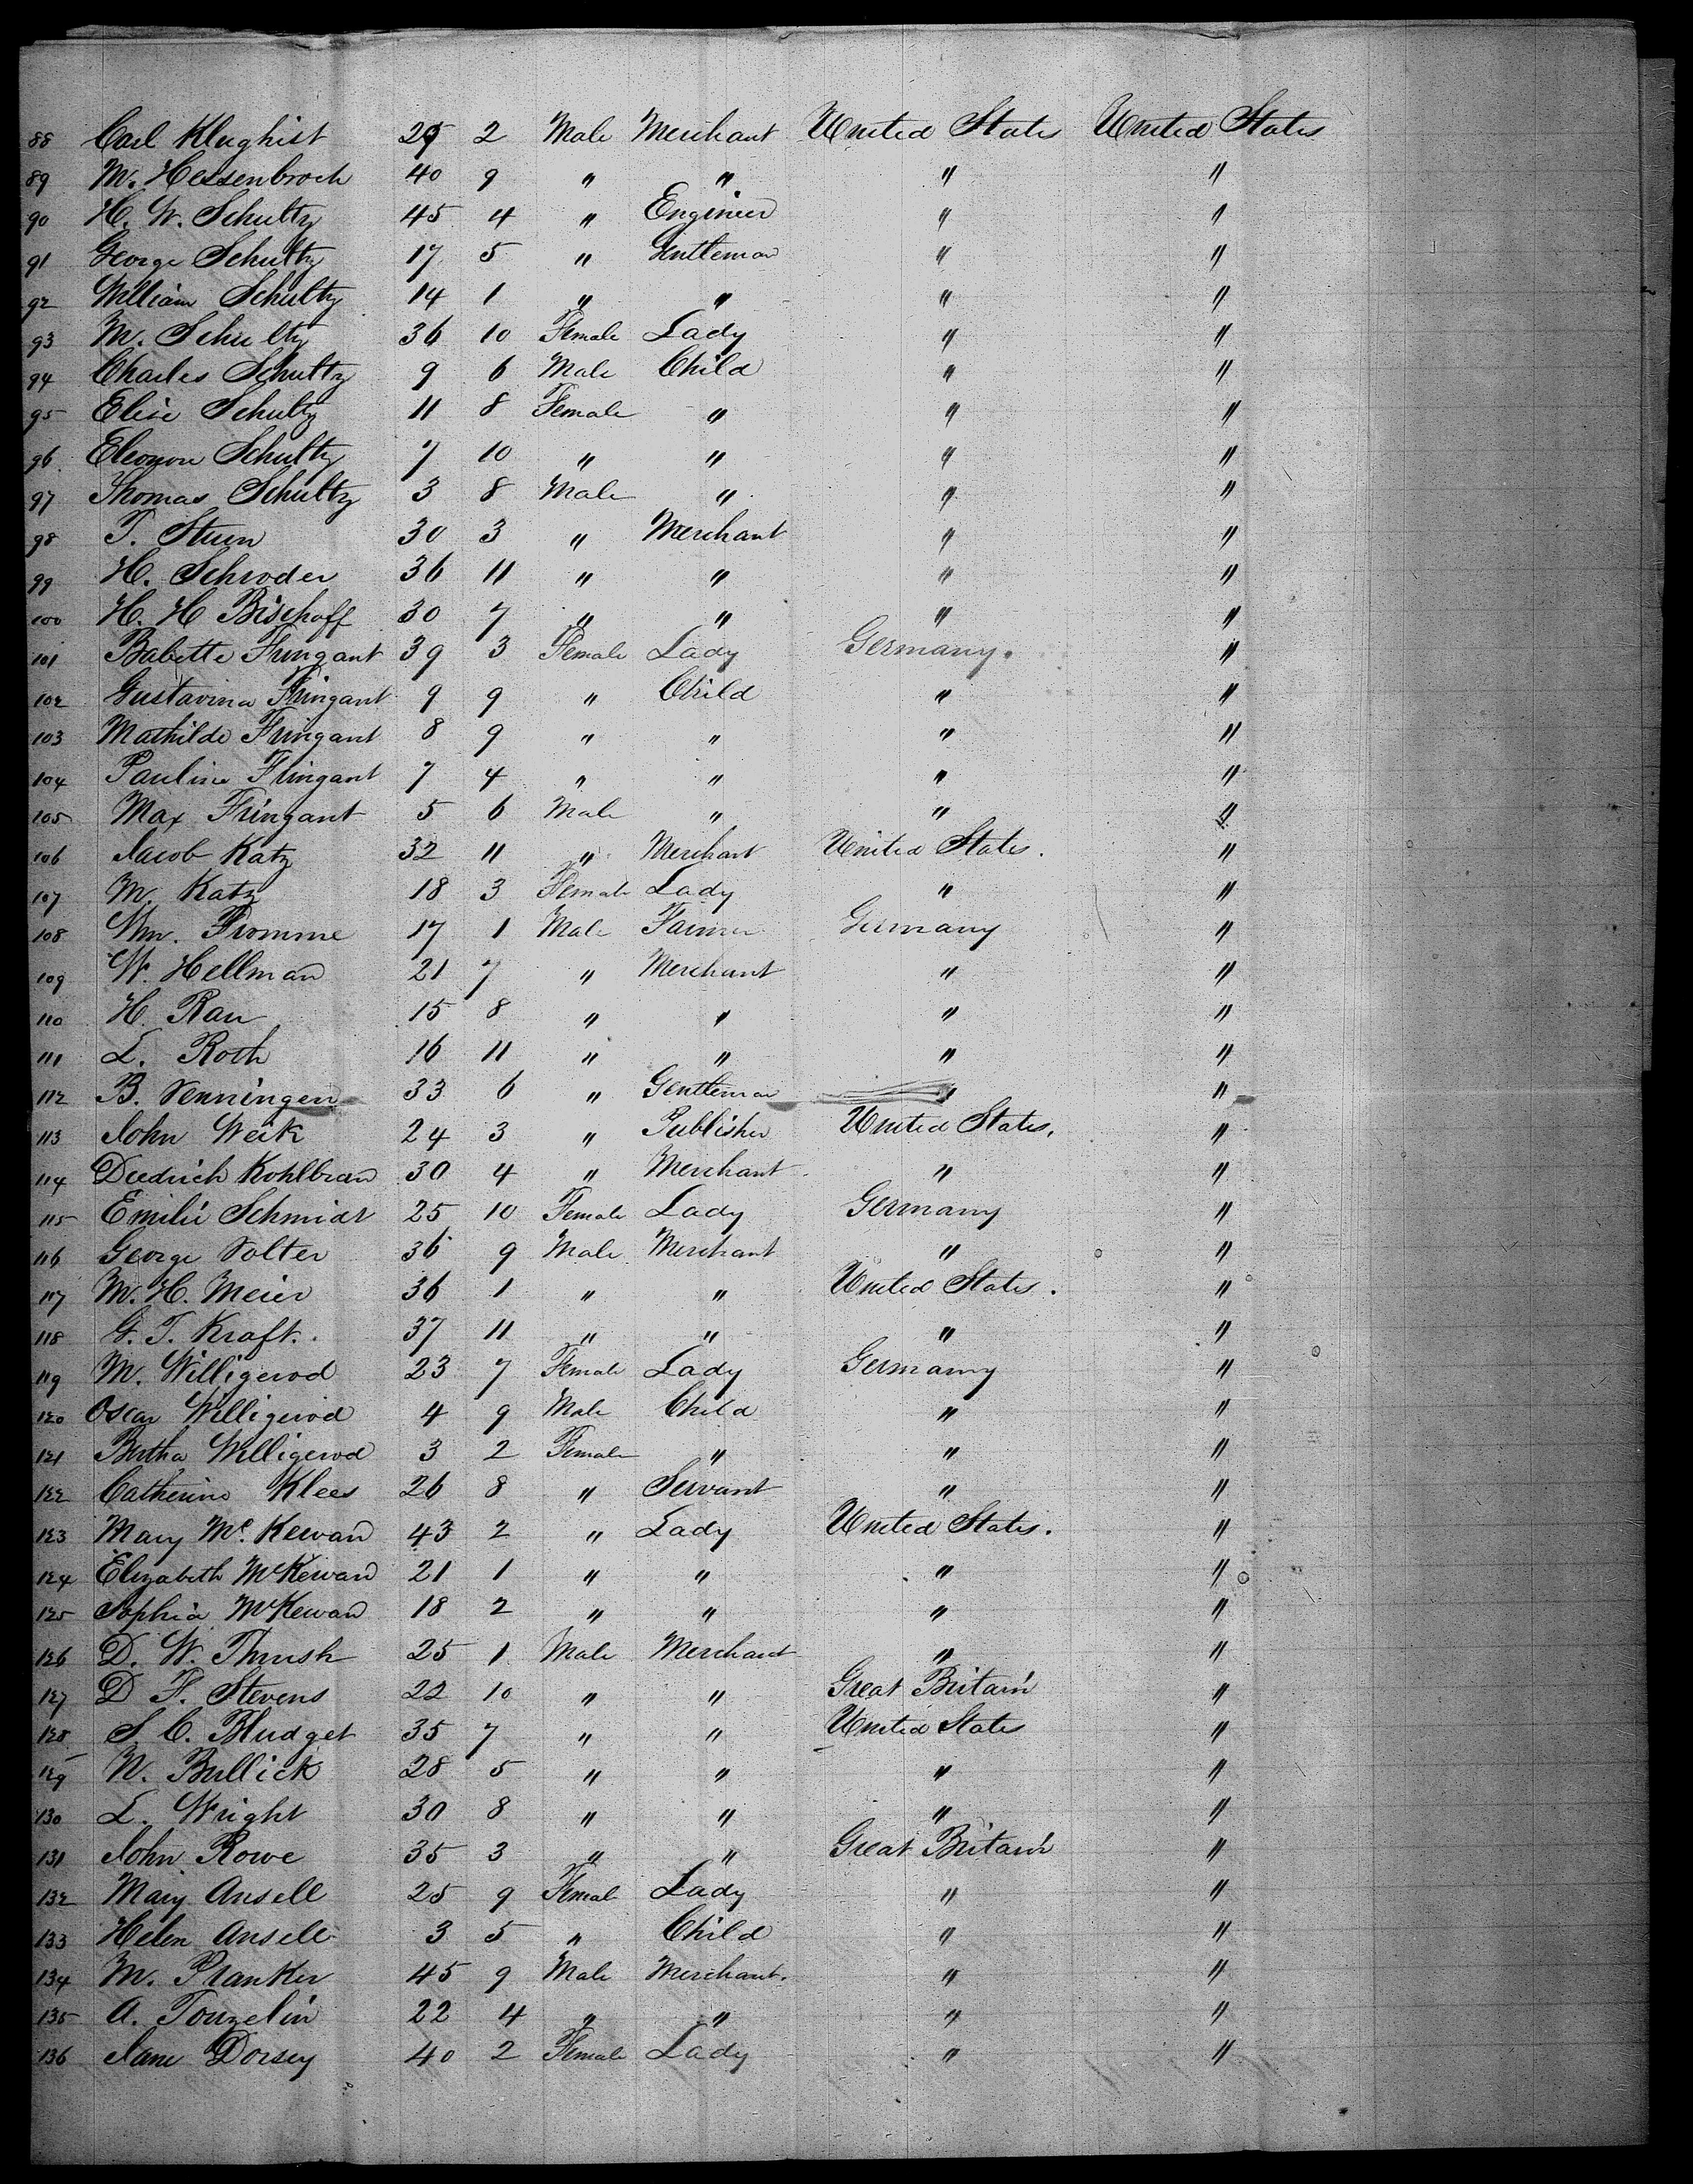 88 Carl Klughist 29 2 Male Merchant United States United States
89 M. Hessenbroch 40 9 " " " "
90 H. W. Schultz 45 4 " Engineer " "
91 George Schultz 17 5 " Gentleman " "
92 William Schultz 14 1 " " " "
93 M. Schultz 36 10 Female Lady " "
94 Charles Schultz 9 6 Male Child " "
95 Elise Schultz 11 8 Female " " "
96 Eleonore Schultz 7 10 " " " "
97 Thomas Schultz 3 8 Male " " "
98 T. 30 3 " Merchant " "
99 H. Schroder 36 11 " " " "
100 H. H Bischoff 30 7 " " " "
101 Babette Fringant 39 3 Female Lady Germany. "
102 Gustavina Fringant 9 9 " Child " "
103 Mathilde Fringant 8 9 " " " "
104 Pauline Fringant 7 4 " " " "
105 Max Fringant 5 6 Male " " "
106 Jacob Katz 32 11 " Merchant United States. "
107 M. Katz 18 3 Female Lady " "
108 Wm. Fromme 17 1 Male Farmer Germany "
109 W. Hellman 21 7 " Merchant " "
110 H. Rau 15 8 " " " "
111 L. Roth 16 11 " " " "
112 B. Venningen 33 6 " Gentleman " "
113 John Weik 24 3 " Publisher United States. "
114 Diedrich Kohlbran 30 4 " Merchant " "
115 Emilie Schmidt 25 10 Female Lady Germany "
116 George Volter 36 9 Male Merchant " "
117 M. H. Meier 36 1 " " United States. "
118 G. T. Kraft. 37 11 " " " "
119 M. Willigerod 23 7 Female Lady Germany "
120 Oscar Willigerod 4 9 Male Child " "
121 Bertha Willigerod 3 2 Female " " "
122 Catherine Klees 26 8 " Servant " "
123 Mary Mc. Kewan 43 2 " Lady United States. "
124 Elizabeth McKewan 21 1 " " " "
125 Sophia McKewan 18 2 " " " "
126 D. W. Thrush 25 1 Male Merchant " "
127 D F. Stevens 22 10 " " Great Britain "
128 S. C. Bludget 35 7 " " United States "
129 N. Bullick 28 5 " " " "
130 L. Wright 30 8 " " " "
131 John Rowe 35 3 " " Great Britain "
132 Mary Ansell 25 9 Female Lady " "
133 Helen Ansell 3 5 " Child " "
134 M. Planker 45 9 Male Merchant. " "
135 A. Touzelin 22 4 " " " "
136 Jane Dorsey 40 2 Female Lady " "